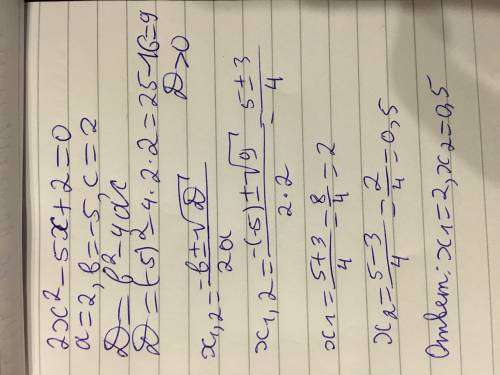 2x² - 5x + 2 = 0
a = 2, b = -5 c = 2
D = b² - 4ac
D = (-5)² - 4 · 2 · 2 = 25 - 16 = 9
D > 0
x₁,₂ = (-b ± √D) / 2a
x₁,₂ = (-(-5) ± √9) / (2 · 2) = (5 ± 3) / 4
x₁ = (5 + 3) / 4 = 8/4 = 2
x₂ = (5 - 3) / 4 = 2/4 = 0,5
Ответ: x₁ = 2, x₂ = 0,5